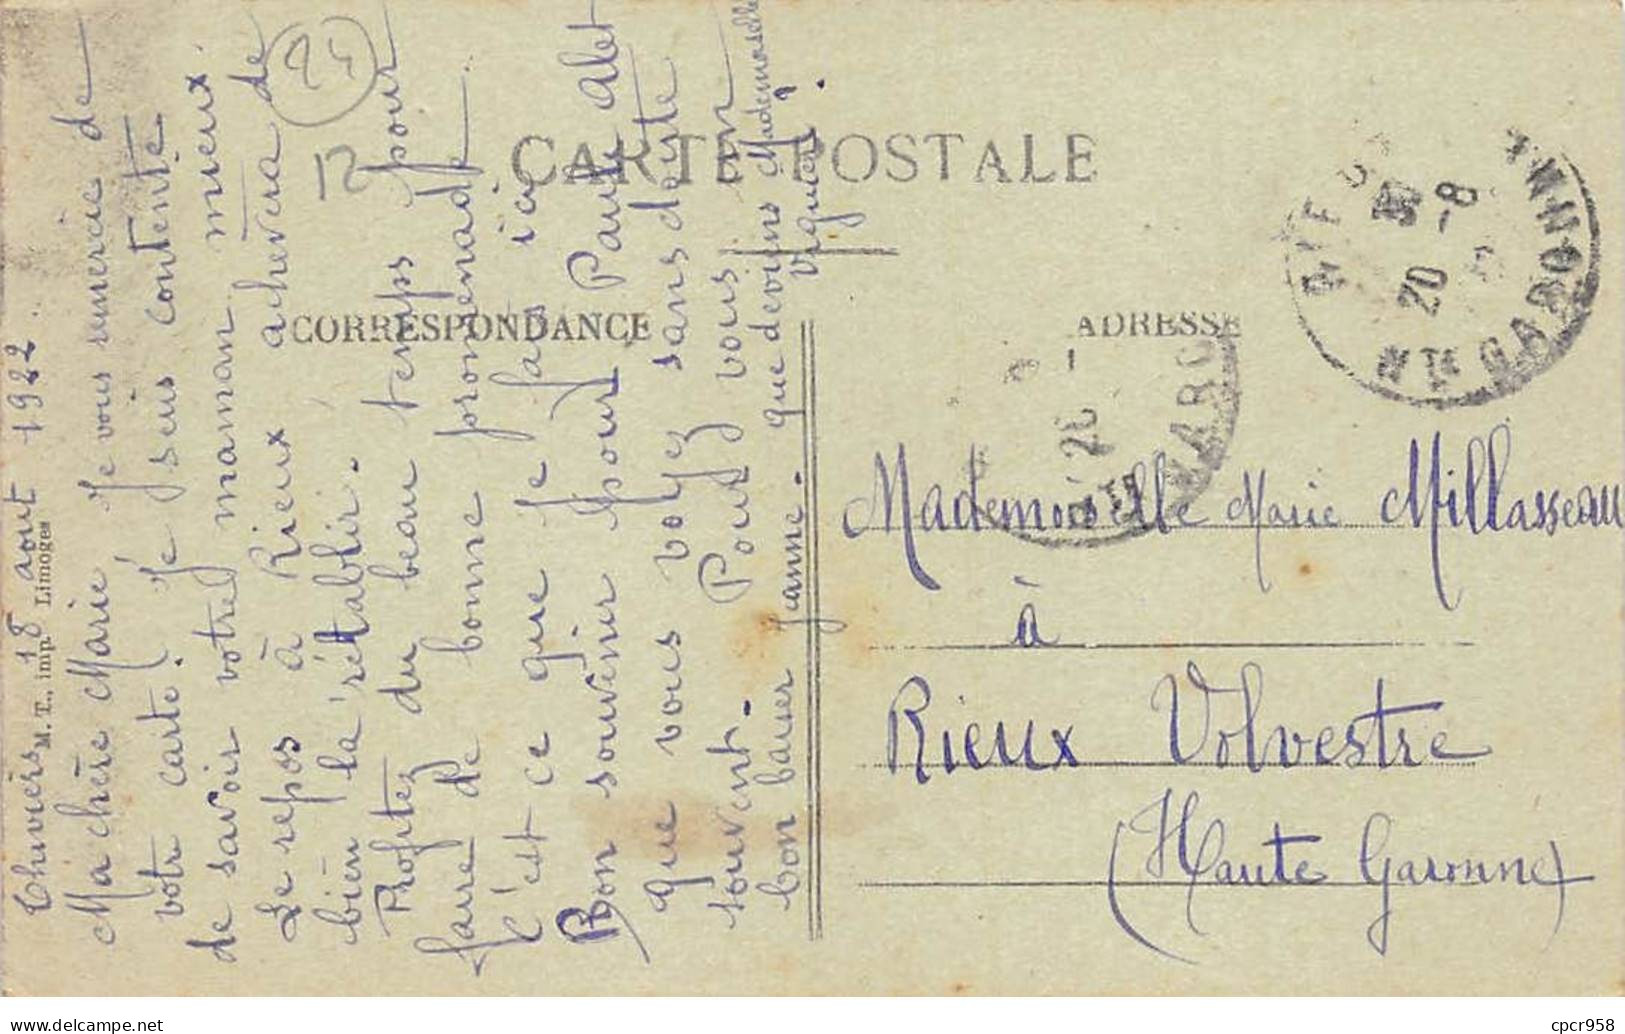 CARTE POSTALE
CORRESPONDANCE
ADRESSE
M. T., imp. Limoges
24
12
Thiviers 18 aout 1922.
Ma chère Marie, Je vous remercie de
votre carte. Je suis contente
de savoir votre maman mieux.
Le repos à Rieux achevera de
bien la rétablir.
Profitez du beau temps pour
faire de bonne promenade.
C'est ce que je fais ici
Bon souvenir pour Paule Alet
que vous voyez sans doute
souvent. Pour vous un
bon baiser Jeanne. que deviens Mademoiselle
Viguier?
Mademoiselle Marie Millasseau
à
Rieux Volvestre
(Haute Garonne)
20 -8
Hte GARONNE
20 -
Hte GARO
cpcr958